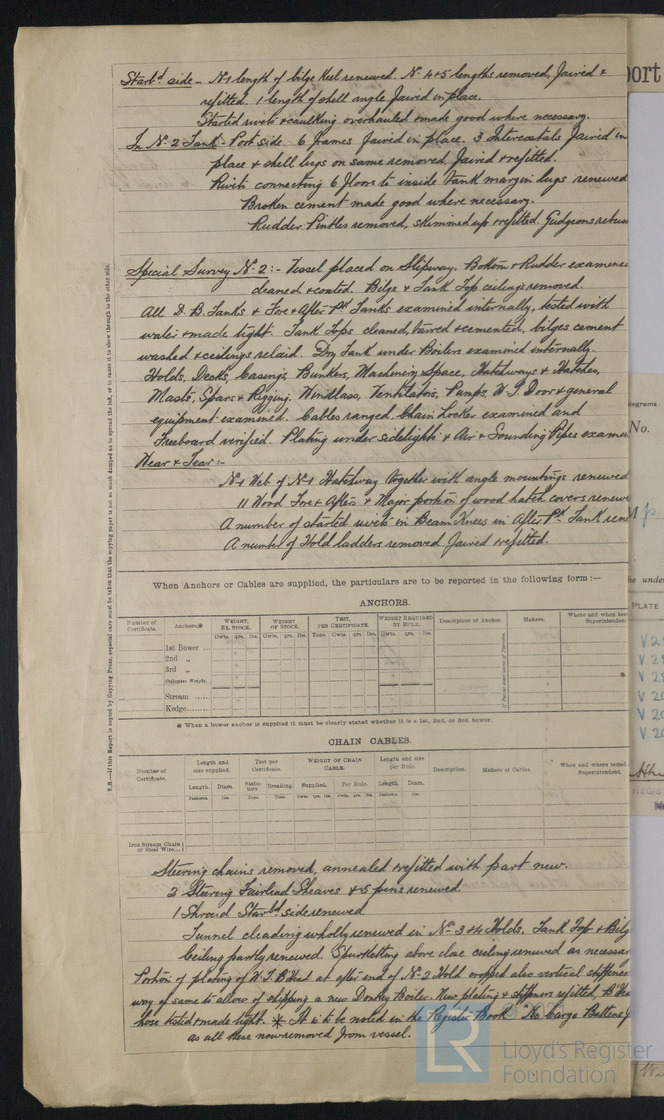 Starbd side - No 1 length of bilge keel renewed. No 4 & 5 lengths removed, faired &
refitted. 1 length of shell angle faired in place.
Started rivets & caulking overhauled & made good where necessary.
In No 2 Tank - Port side 6 frames faired in place. 3 Intercostals faired in
place & shell lugs on same removed, faired & refitted.
Rivets connecting 6 floors to inside tank margin lugs renewed
Broken cement made good where necessary.
Rudder Pintles removed, skimmed up & refitted. Gudgeons rebus
Special Survey No 2:- Vessel placed on Slipway. Bottom & Rudder examine
cleaned & coated. Bilge & Tank Top ceilings removed.
All D.B. Tanks & Fore & After Pk Tanks examined internally, tested with
water & made tight. Tank Tops cleaned, tarred & cemented, bilges cement
washed & ceilings relaid. Dry Tank under Boilers examined internally.
Holds, Decks, Casings, Bunkers, Machinery Space, Hatchways & Hatches,
Masts, Spars & Rigging, Windlass, Ventilators, Pumps, W.T. Door & general
equipment examined. Cables ranged. Chain Locker examined and
Freeboard verified. Plating under sidelights & Air & Sounding Pipes examin
Wear & Tear:-
No 1 Web of No 1 Hatchway together with angle mountings renewed
11 Wood Fore & Afters & Major portion of wood hatch covers renewe
A number of started rivets in Beam Knees in After Pk Tank ren
A number of Hold ladders removed faired & refitted.
When Anchors or Cables are supplied, the particulars are to be reported in the following form :—
ANCHORS.
Number of Certificate. Anchors.* WEIGHT, EX. STOCK. WEIGHT OF STOCK. TEST, PER CERTIFICATE. WEIGHT REQUIRED BY RULE. Description of Anchor. Makers. Where and when test Superintendent
Cwts. qrs. lbs. Cwts. qrs. lbs. Tons. Cwts. qrs. lbs. Cwts. qrs. lbs.
1st Bower ...
2nd „
3rd „
Collective Weight.
Stream ......
Kedge.........
* When a bower anchor is supplied it must be clearly stated whether it is a 1st, 2nd, or 3rd bower.
CHAIN CABLES.
Number of Certificate. Length and size supplied. Test per Certificate. WEIGHT OF CHAIN CABLE. Length and size per Rule. Description. Makers of Cables. When and where tested Superintendent.
Length. Diam. Statutory. Breaking. Supplied. Per Rule. Length. Diam.
Fathoms. Ins. Tons. Tons. Cwts. qrs. lbs. Cwts. qrs. lbs. Fathoms. Ins.
Iron Stream Chain or Steel Wire...
Steering chains removed, annealed & refitted with part new.
2 Steering Fairlead Sheaves & 5 pins renewed
1 Shroud Starbd side renewed
Tunnel cleading wholly renewed in Nos 3 & 4 Holds. Tank Top & Bilg
Ceiling partly renewed. Sparketting above close ceiling renewed as necessar
Portion of plating of W.T. B'Head at after end of No 2 Hold cropped also vertical stiffene
way of same to allow of shipping a new Donkey Boiler. New plating & stiffeners refitted B'Hea
hose tested & made tight. * It is to be noted in the Register Book "No Cargo Battens
as all these now removed from vessel.
N.B.—If this Report is copied by Copying Press, especial care must be taken that the copying paper is not so much damped as to spread the ink, or to cause it to show through to the other side.
LR
Lloyd's Register
Foundation
port
elegrams:
No.
he unde
PLATE